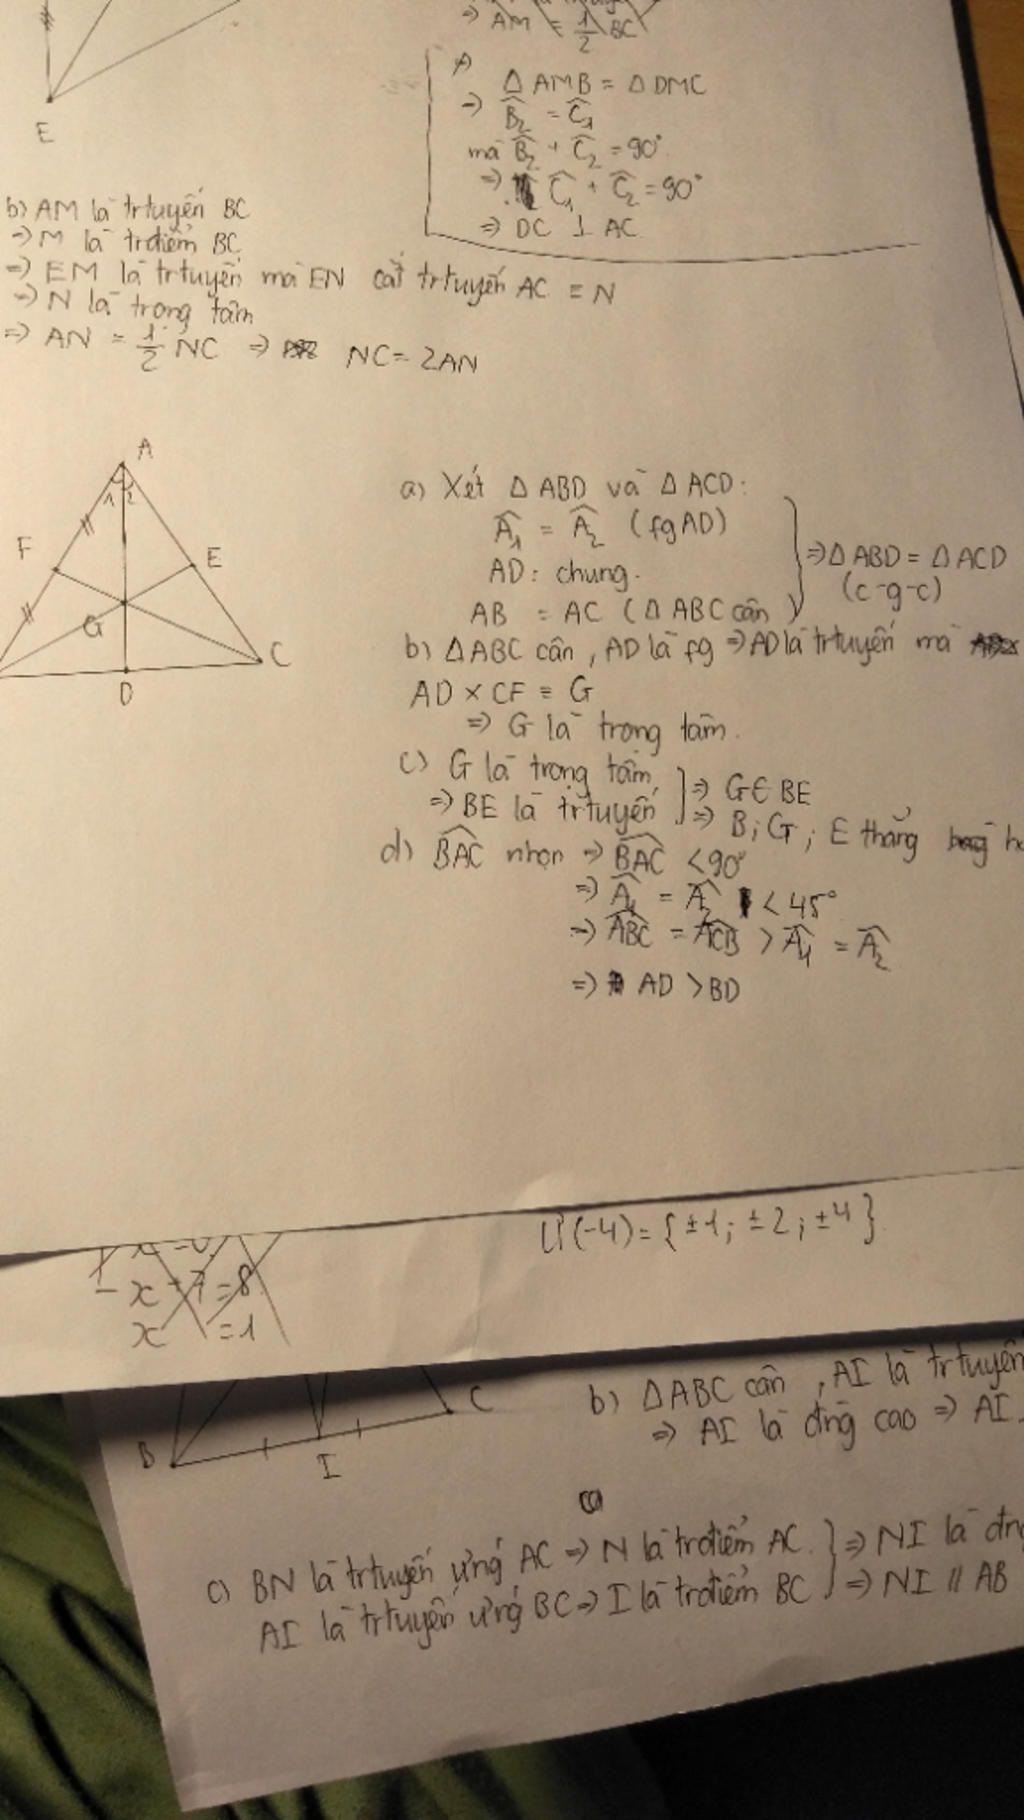 ⇒ AM = 1/2 BC
E
△AMB = △DMC
⇒ B̂₂ = Ĉ₁
mà B̂₂ + Ĉ₂ = 90°
⇒ Ĉ₁ + Ĉ₂ = 90°
⇒ DC ⊥ AC
b) AM là trtuyến BC
⇒ M là trđiểm BC
⇒ EM là trtuyến mà EN cắt trtuyến AC ≡ N
⇒ N là trọng tâm
⇒ AN = 1/2 NC ⇒ NC = 2AN
A
1 2
F
E
G
C
D
a) Xét △ABD và △ACD:
Â₁ = Â₂ (fg AD)
AD: chung.
AB = AC (△ABC cân)
⇒ △ABD = △ACD
(c-g-c)
b) △ABC cân, AD là fg ⇒ AD là trtuyến mà
AD × CF ≡ G
⇒ G là trọng tâm.
c) G là trọng tâm
⇒ BE là trtuyến
⇒ G ∈ BE
⇒ B; G; E thẳng
d) BAC nhọn ⇒ BAC < 90°
⇒ Â₁ = Â₂ < 45°
⇒ ABC = ACB > Â₁ = Â₂
⇒ AD > BD
Ư(-4) = {±1; ±2; ±4}
x = 1
B
I
C
b) △ABC cân, AI là trtuyến
⇒ AI là đng cao ⇒ AI
c) BN là trtuyến ứng AC ⇒ N là trđiểm AC
AI là trtuyến ứng BC ⇒ I là trđiểm BC
⇒ NI là
⇒ NI // AB